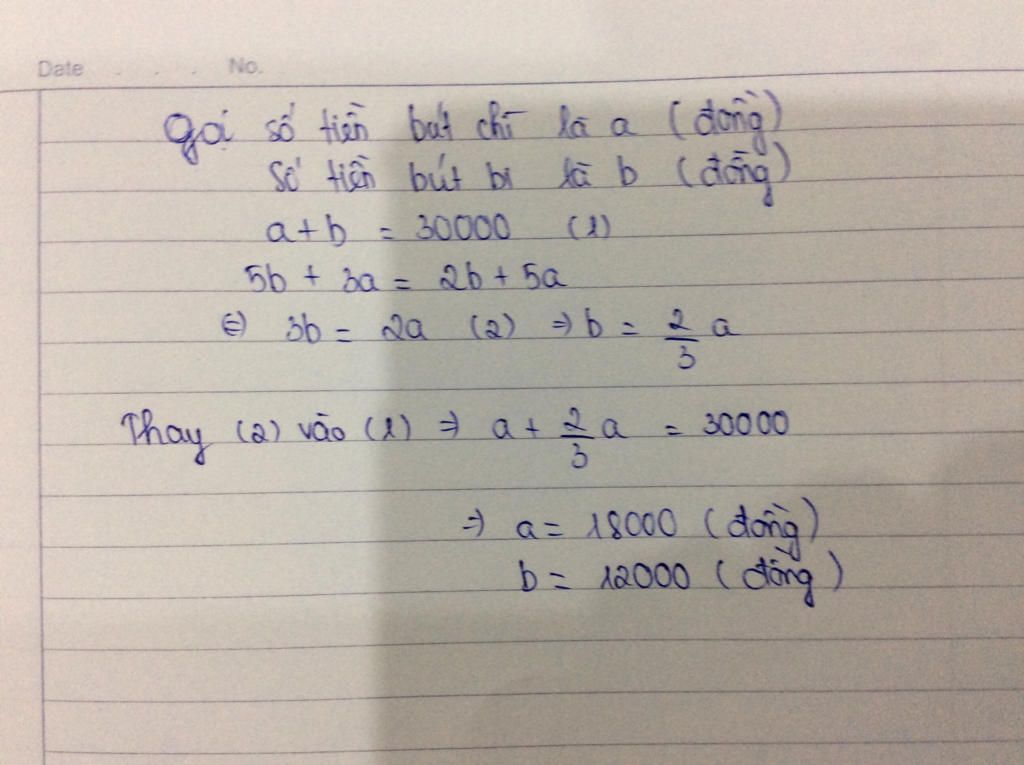 Date . . . No.
Gọi số tiền bút chì là a (đồng)
Số tiền bút bi là b (đồng)
a + b = 30000 (1)
5b + 3a = 2b + 5a
⇔ 3b = 2a (2) ⇒ b = 2/3 a
Thay (2) vào (1) ⇒ a + 2/3 a = 30000
⇒ a = 18000 (đồng)
b = 12000 (đồng)